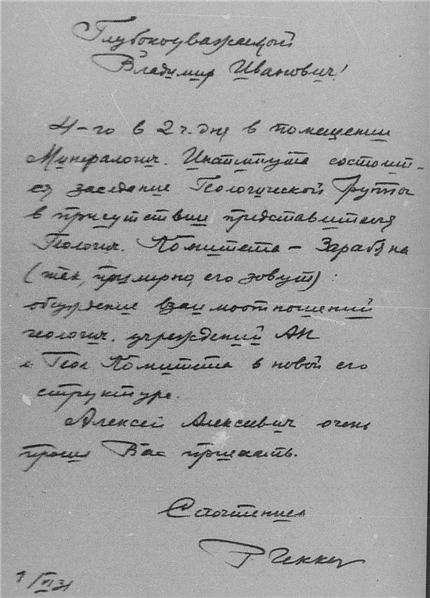 Глубокоуважаемый
Владимир Иванович!
4-го в 2 ч. дня в помещении
Минералогич. Института состоит-
ся заседание Геологической Группы
в присутствии представителя
Геологич. Комитета –
(так, примерно, его зовут):
обсуждение взаимоотношений
геологич. учреждений АН
и Геол Комитета в новой его
структуре.
Алексей Алексеевич очень
просил Вас приехать.
С почтением
Р Геккер